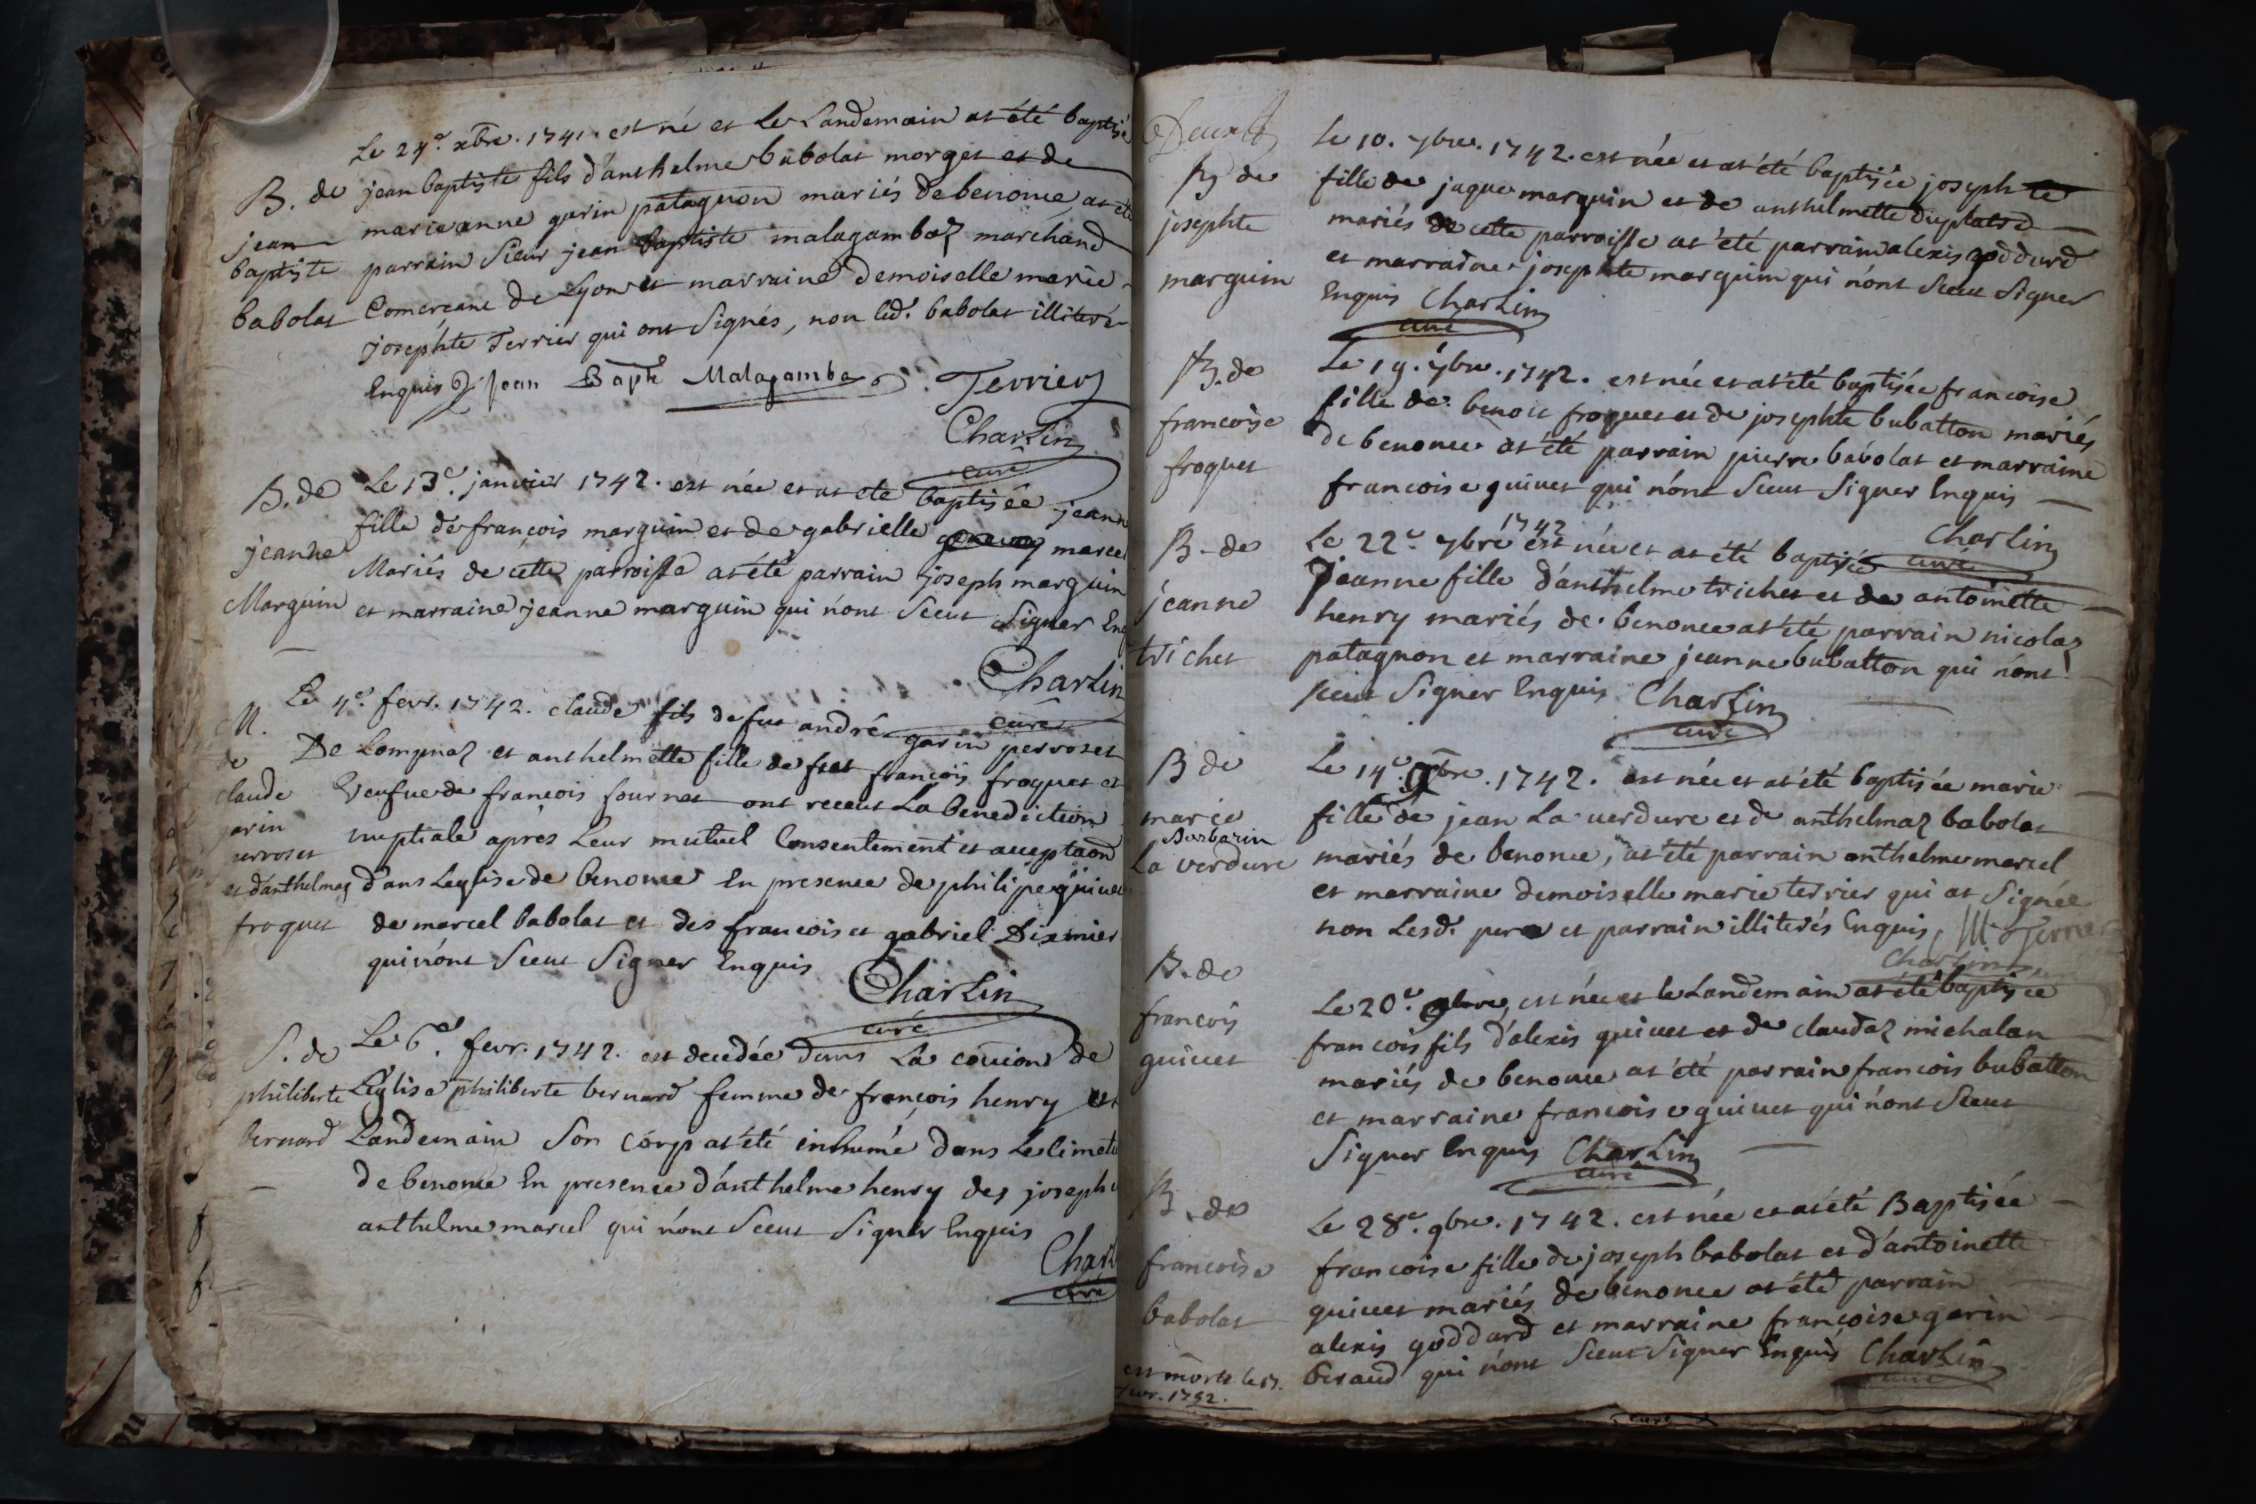 Le 24.e xbre. 1741. est né et Le Landemain at été baptisé
B. de jean baptiste fils d'anthelme babolat morget et de
jean marie anne garin patagnon mariés de benonce, at été
baptiste parrain Sieur jean baptiste malagambaz marchand
babolat Comercant de Lyon et marraine demoiselle marie
josephte Terrier qui ont Signés, non led. babolat illiteré
Enquis Jean Bapte Malagamba Terrier
Charlin
curé
B. de Le 13.e janvier 1742. est née et at eté baptisée jeanne
fille de françois marguin et de gabrielle marcel
jeanne Mariés de cette parroisse at été parrain joseph marguin
Marguin et marraine jeanne marguin qui n'ont Sceut Signer Enq
Charlin
curé
M. Le 4.e fevr. 1742. claude fils de fut andré garin perroset
de De Lompnaz et anthelmette fille de fut françois froquet et
claude Veufue de francois fournet ont receut La benediction
garin nuptiale aprés Leur mutuel Consentement et acceptaõn
perroset
et d'anthelmaz dans Leglise de benonce En presence de philipe guiuet
froquet de marcel babolat et des francois et gabriel Diximier
qui n'ont Sceut Signer Enquis
Charlin
curé
S. de Le 6.e fevr. 1742. est decedée dans La coñion de
philiberte L'eglise philiberte bernard femme de françois henry et
bernard Landemain Son corp at été inhumé dans Le cimete
de benonce En presence d'anthelme henry des joseph
anthelme marcel qui n'ont Sceut Signer Enquis
Charl
curé
B de Le 10. 7bre. 1742. est née et at été baptisée josephte
josephte fille de jaque marguin et de anthelmette duplatre
mariés de cette parroisse at été parrain alexis goddard
marguin et marraine josephte marguin qui n'ont Sceut Signer
Enquis Charlin
curé
B. de Le 19. 7bre. 1742. est née et at été baptisée francoise
francoise fille de benoit froquet et de josephte bubatton mariés
froquet de benonce at été parrain pierre babolat et marraine
francoise guiuet qui n'ont Sceut Signer Enquis
Charlin
curé
1742
B. de Le 22.e 7bre est née et at été baptisée
jeanne Jeanne fille d'anthelme trichet et de antoinette
henry mariés de benonce at été parrain nicolaz
trichet patagnon et marraine jeanne bubatton qui n'ont
sceut Signer Enquis Charlin
curé
B de Le 14.e 9bre. 1742. est née et at été baptisée marie
marie fille de jean La verdure et de anthelmaz babolat
Barbarin
La verdure mariés de benonce, at été parrain anthelme marcel
et marraine demoiselle marie terrier qui at Signée
non Lesd. pere et parrain illiterés Enquis, M Terrier
Charlin curé
B. de Le 20.e 9bre, est née et le Landemain at été baptisée
françois francois fils d'alexis guiuet et de claudaz michalan
guiuet mariés de benonce at été parrain francois bubatton
et marraine francoise guiuet qui n'ont Sceut
Signer Enquis Charlin
curé
B. de Le 28.e 9bre. 1742. est née et at été Baptisée
francoise francoise fille de joseph babolat et d'antoinette
babolat guiuet mariés de benonce at été parrain
alexis goddard et marraine francoise garin
est morte le 17. beraud qui n'ont Sceut Signer Enquis Charlin
fevr. 1752. curé